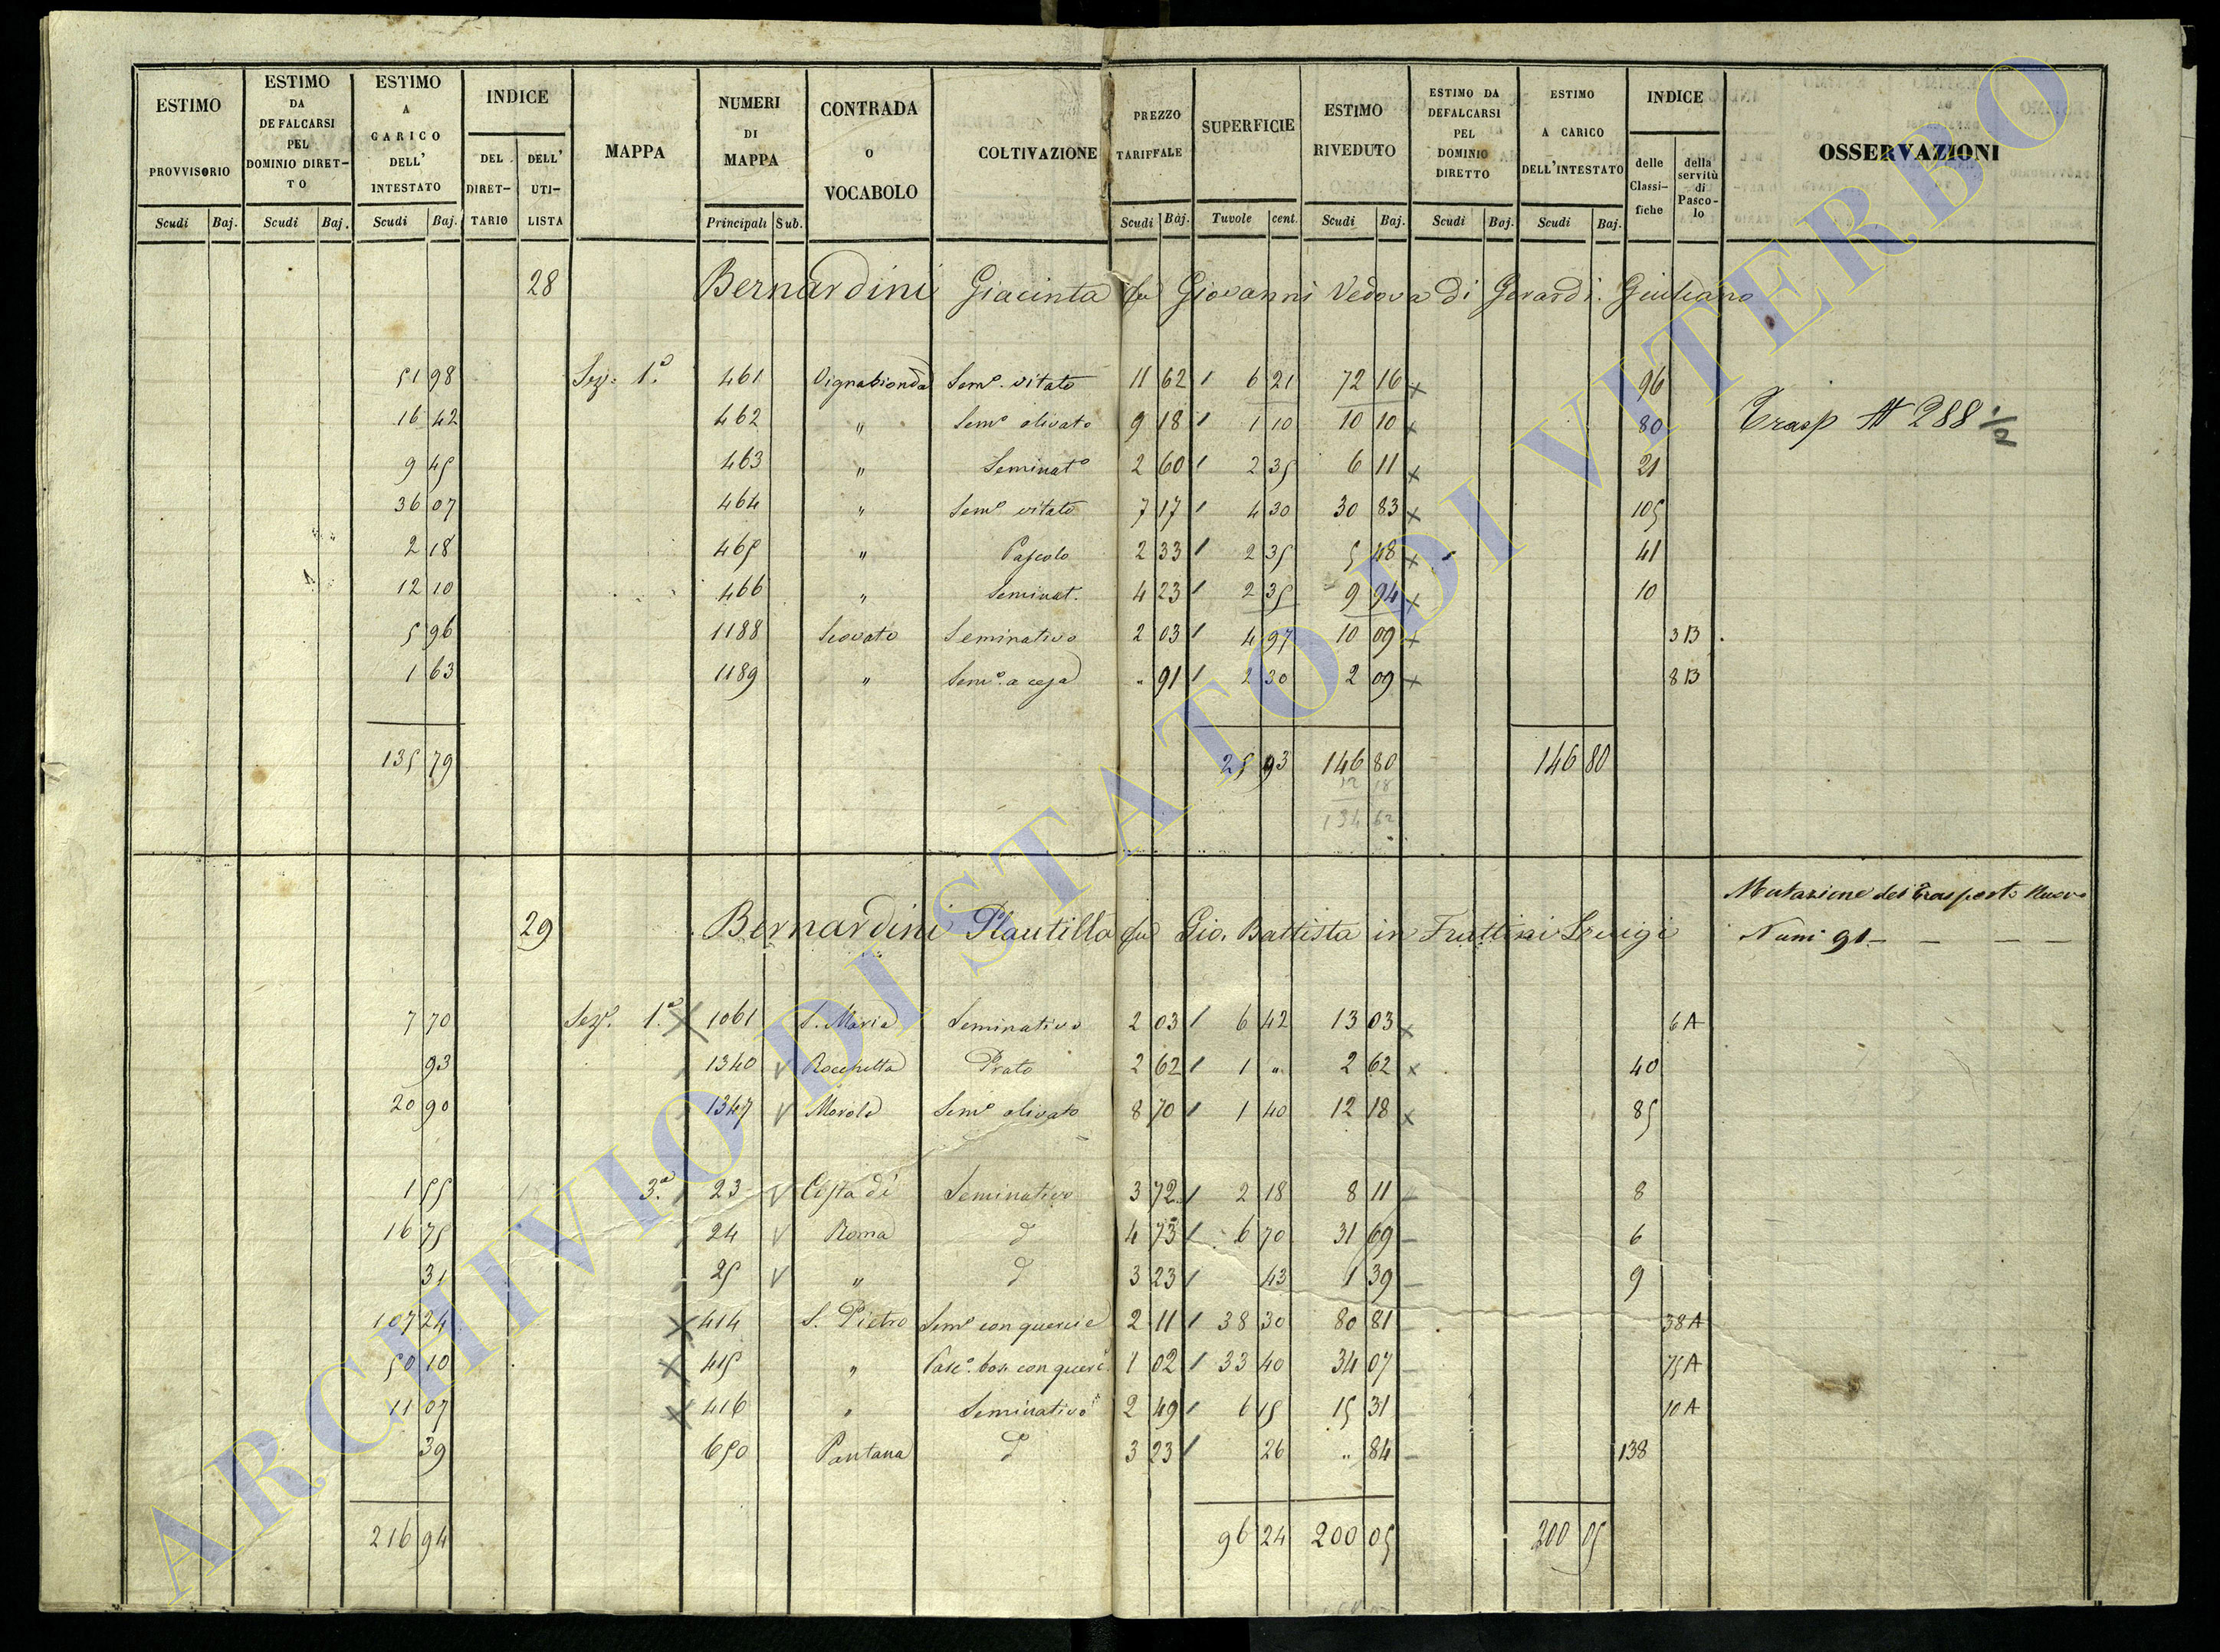 ESTIMO PROVVISORIO
Scudi Baj.
ESTIMO DA DEFALCARSI PEL DOMINIO DIRET-TO
Scudi Baj.
ESTIMO A CARICO DELL' INTESTATO
Scudi Baj.
INDICE
DEL DIRET-TARIO
DELL' UTI-LISTA
MAPPA
NUMERI DI MAPPA
Principali Sub.
CONTRADA O VOCABOLO
COLTIVAZIONE
PREZZO TARIFFALE
Scudi Baj.
SUPERFICIE
Tavole cent.
ESTIMO RIVEDUTO
Scudi Baj.
ESTIMO DA DEFALCARSI PEL DOMINIO DIRETTO
Scudi Baj.
ESTIMO A CARICO DELL'INTESTATO
Scudi Baj.
INDICE
delle Classi-fiche
della servitù di Pasco-lo
OSSERVAZIONI
28 Bernardini Giacinta fu Giovanni Vedova di Gerardi Giuliano
51 98 Sez. 1.a 461 Vignabionda Sem.o vitato 11 62 6 21 72 16 x 96
16 42 462 " Sem.o olivato 9 18 1 10 10 10 x 80 Trasp # 288 1/2
9 45 463 " Seminat.o 2 60 2 35 6 11 x 21
36 07 464 " Sem.o vitato 7 17 4 30 30 83 x 105
2 18 465 " Pascolo 2 33 2 35 5 48 x 41
12 10 466 " Seminat. 4 23 2 35 9 94 x 10
5 96 1188 Scovato Seminativo 2 03 4 97 10 09 x 3B
1 63 1189 " Sem.o a cesa " 91 2 30 2 09 x 8B
135 79 25 93 146 80 146 80
12 18
134 62
Mutazione del Trasporto Nuovo
29 Bernardini Plautilla fu Gio. Battista in Frattini Luigi Num 91 - - - -
7 70 Sez.e 1.a x 1061 S. Maria Seminativo 2 03 6 42 13 03 x 6A
93 1340 v Rocchetta Prato 2 62 1 " 2 62 x 40
20 90 1347 v Morole Sem.o olivato 8 70 1 40 12 18 x 85
1 55 3.a 23 v Costa di Seminativo 3 72 2 18 8 11 8
16 75 24 v Roma d 4 73 6 70 31 69 - 6
31 25 v " d 3 23 43 1 39 - 9
107 24 x 414 S. Pietro Sem.o con quercie 2 11 38 30 80 81 - 38A
50 10 x 415 " Pasc.o bos. con querc. 1 02 33 40 34 07 - 75A
11 07 x 416 " Seminativo 2 49 6 15 15 31 - 10A
39 650 Pantana d 3 23 26 " 84 - 138
216 94 96 24 200 05 200 05
ARCHIVIO DI STATO DI VITERBO